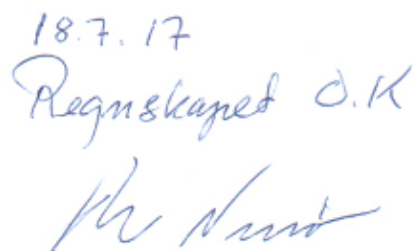 18.7.17
Regnskapet O.K